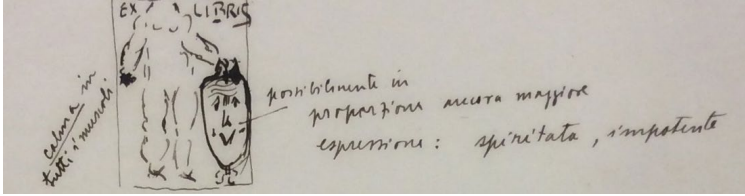 EX LIBRIS
Calma in
tutti i muscoli
possibilmente in
proporzione ancora maggiore
espressione: spiritata, impotente